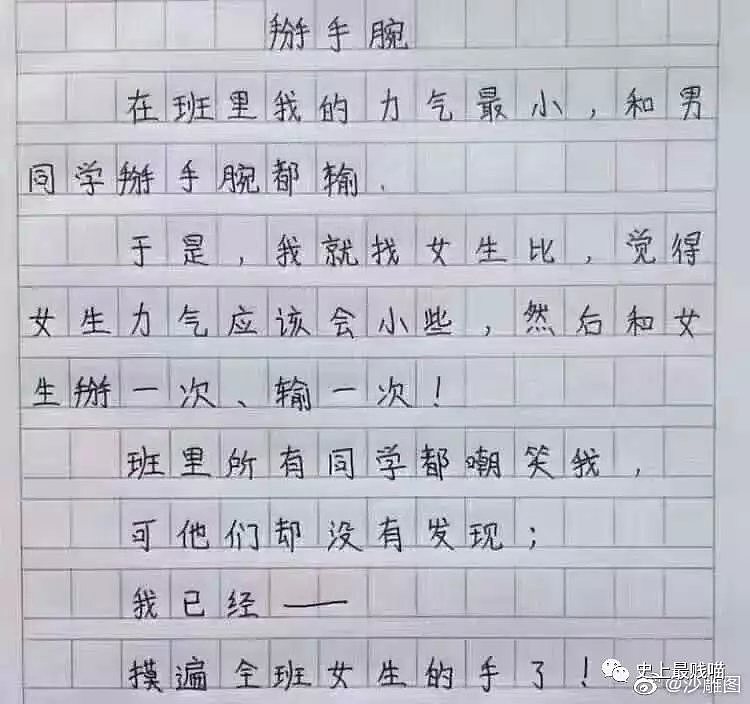 掰手腕
在班里我的力气最小，和男
同学掰手腕都输.
于是，我就找女生比，觉得
女生力气应该会小些，然后和女
生掰一次、输一次！
班里所有同学都嘲笑我，
可他们却没有发现；
我已经——
摸遍全班女生的手了！
史上最贱喵
@沙雕图